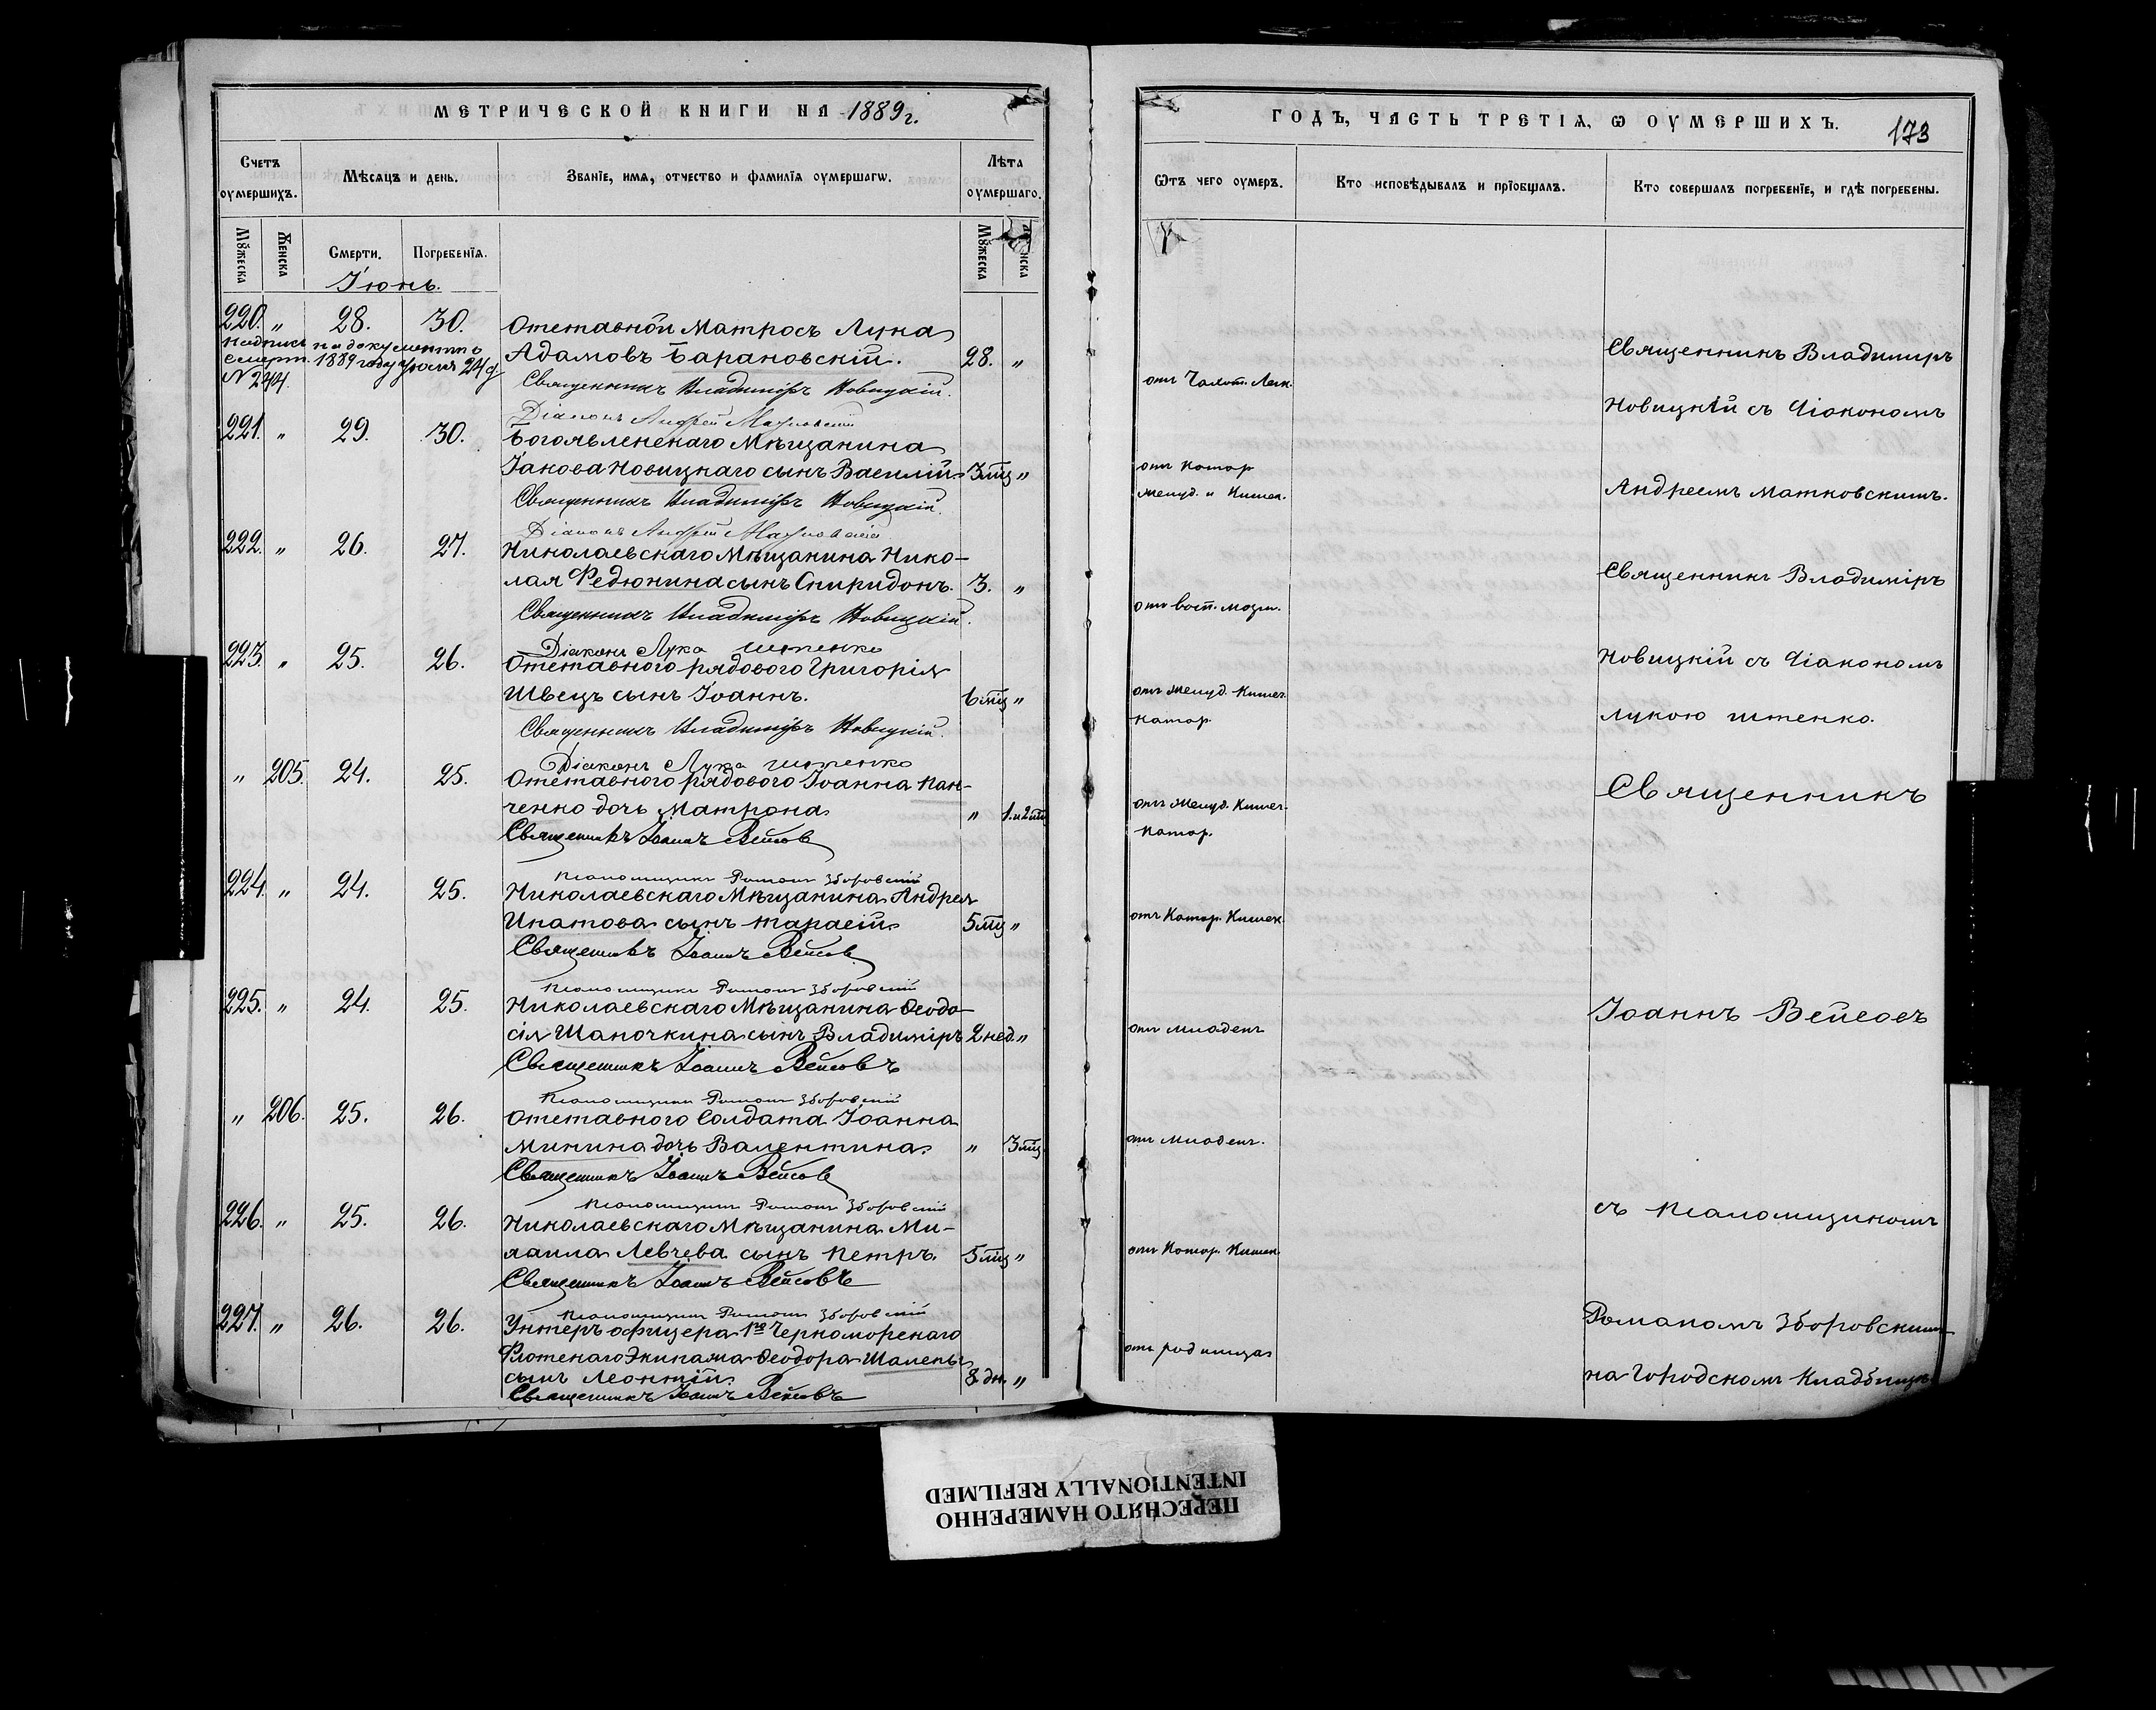 МЕТРИЧЕСКОЙ КНИГИ НА 1889 г.
Счетъ оумершихъ.
Мѣсяцъ и день.
Званїе, имя, отчество и фамилїя оумершагѡ.
Лѣта оумершаго.
Мꙋжеска
Женска
Смерти.
Погребенїя.
Мꙋжеска
Іюнь.
220. „ 28. 30. Отставной Матросъ Лука
Адамовъ Барановскій. 28. „
Надпись на документѣ о
смерт. 1889 году Іюля 24 д
N 244.
Священникъ Владиміръ Новицкій.
Діаконъ Андрей Матковскій
221. „ 29. 30. Богоявленскаго Мѣщанина
Іакова Новицкаго сынъ Василій 3 мц „
Священникъ Владиміръ Новицкій.
Діаконъ Андрей Матковскій
222. „ 26. 27. Николаевскаго Мѣщанина Нико-
лая Федюнина сынъ Спиридонъ. 3. „
Священникъ Владиміръ Новицкій.
Діаконъ Лука Иттенко
223. „ 25. 26. Отставного рядового Григорія
Швецъ сынъ Іоаннъ. 6 мц „
Священникъ Владиміръ Новицкій.
Діаконъ Лука
„ 205. 24. 25. Отставного рядового Іоанна Пан-
ченко дочь Матрона „ 1 и 2 мц
Священникъ Іоаннъ Вейсовъ
Псаломщикъ Романъ Зборовскій
224. „ 24. 25. Николаевскаго Мѣщанина Андрея
Ипатова сынъ Тарасій 5 мц „
Священникъ Іоаннъ Вейсовъ
Псаломщикъ Романъ Зборовскій
225. „ 24. 25. Николаевскаго Мѣщанина Ѳеодо
сія Шапочкина сынъ Владиміръ 2 нед. „
Священникъ Іоаннъ Вейсовъ
Псаломщикъ Романъ Зборовскій
„ 206. 25. 26. Отставного Солдата Іоанна
Минина дочь Валентина „ 3 мц
Священникъ Іоаннъ Вейсовъ
Псаломщикъ Романъ Зборовскій
226. „ 25. 26. Николаевскаго Мѣщанина Ми-
хаила Левчева сынъ Петръ. 5 мц „
Священникъ Іоаннъ Вейсовъ
Псаломщикъ Романъ Зборовскій
227. „ 26. 26. Унтеръ офицера 1го Черноморскаго
Флотскаго Экипажа Ѳеодора
сынъ Леонтій. 8 дн. „
Священникъ Іоаннъ Вейсовъ
ГОДЪ, ЧАСТЬ ТРЕТІЯ, Ѡ ОУМЕРШИХЪ. 173
Ѿтъ чего оумеръ.
Кто исповѣдывалъ и прїобщалъ.
Кто совершалъ погребенїе, и гдѣ погребены.
отъ Чахот. Легк.
отъ Катар
желуд. и Кишек.
отъ восп. мозга.
отъ Желуд. Кишеч.
катар.
отъ Желуд. Кишеч.
катар.
отъ Катар. Кишек.
отъ младенч
отъ младенч.
отъ Катар. Кишек.
отъ родимца
Священникъ Владиміръ
Новицкій съ Діакономъ
Андреемъ Матковскимъ.
Священникъ Владиміръ
Новицкій съ Діакономъ
Лукою
Священникъ
Іоаннъ Вейсовъ
съ Псаломщикомъ
Романомъ Зборовскимъ
на Городскомъ Кладбищѣ
ПЕРЕСНЯТО НАМЕРЕННО
INTENTIONALLY REFILMED